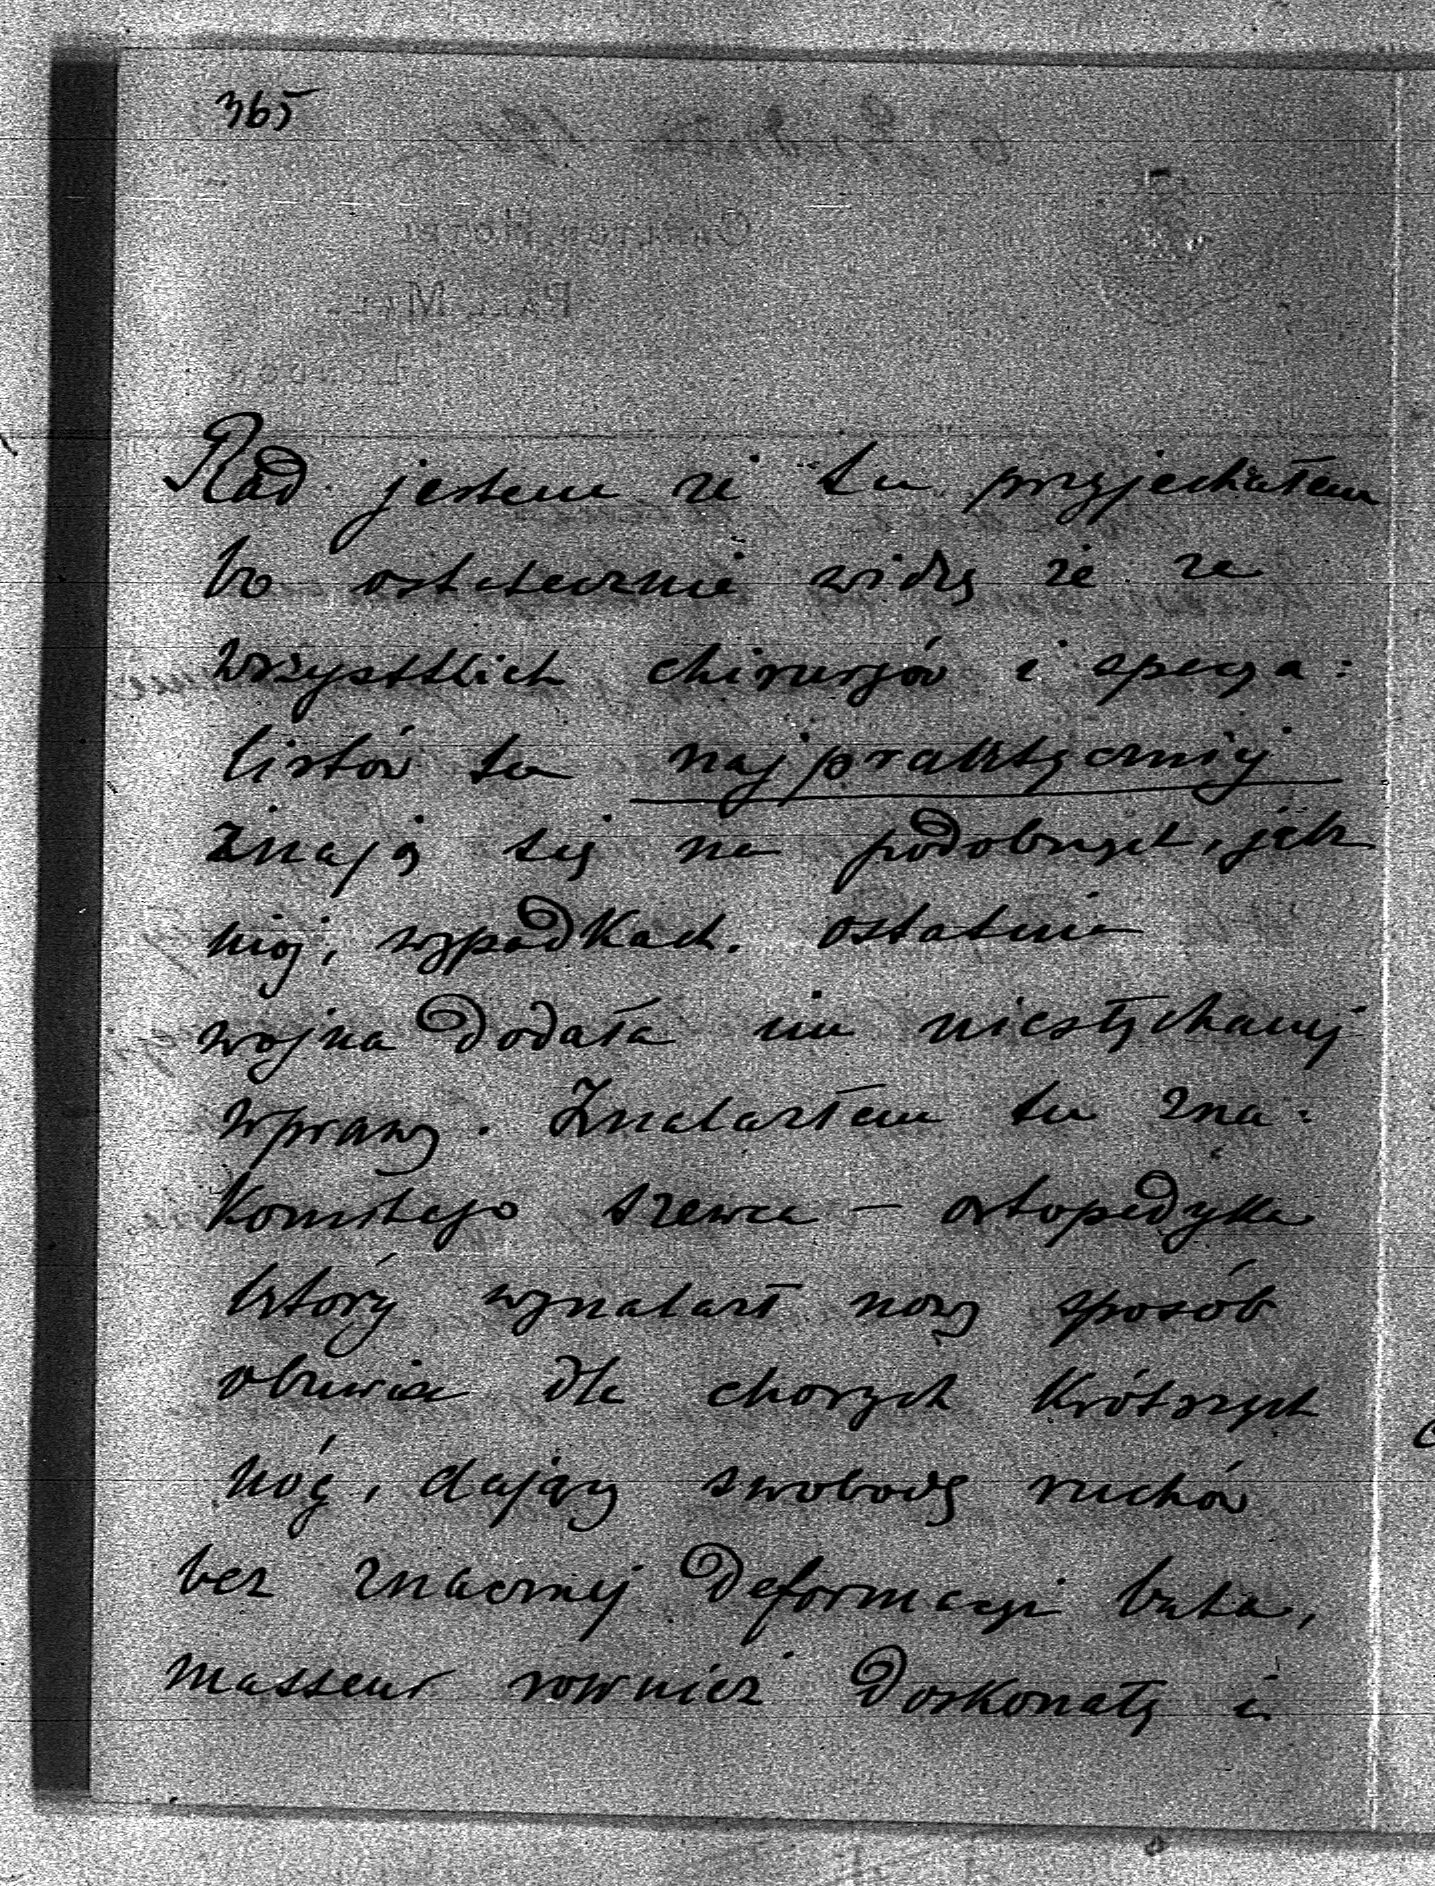 365
Rad jestem że tu przyjechałem
bo ostatecznie widzę że ze
wszystkich chirurgów i specya:
listów tu najpraktyczniej
znają się na podobnych, jak
mój, wypadkach. ostatnia
wojna dodała im niesłychanej
wprawy. Znalazłem tu zna:
komitego szewca – ortopedyka
który wynalazł nowy sposób
obuwia dla chorych krótszych
nóg, dający swobodę ruchów
bez znacznej deformacyi buta,
masseur rownież doskonały i
CARLTON HOTEL
PALL MALL
LONDON